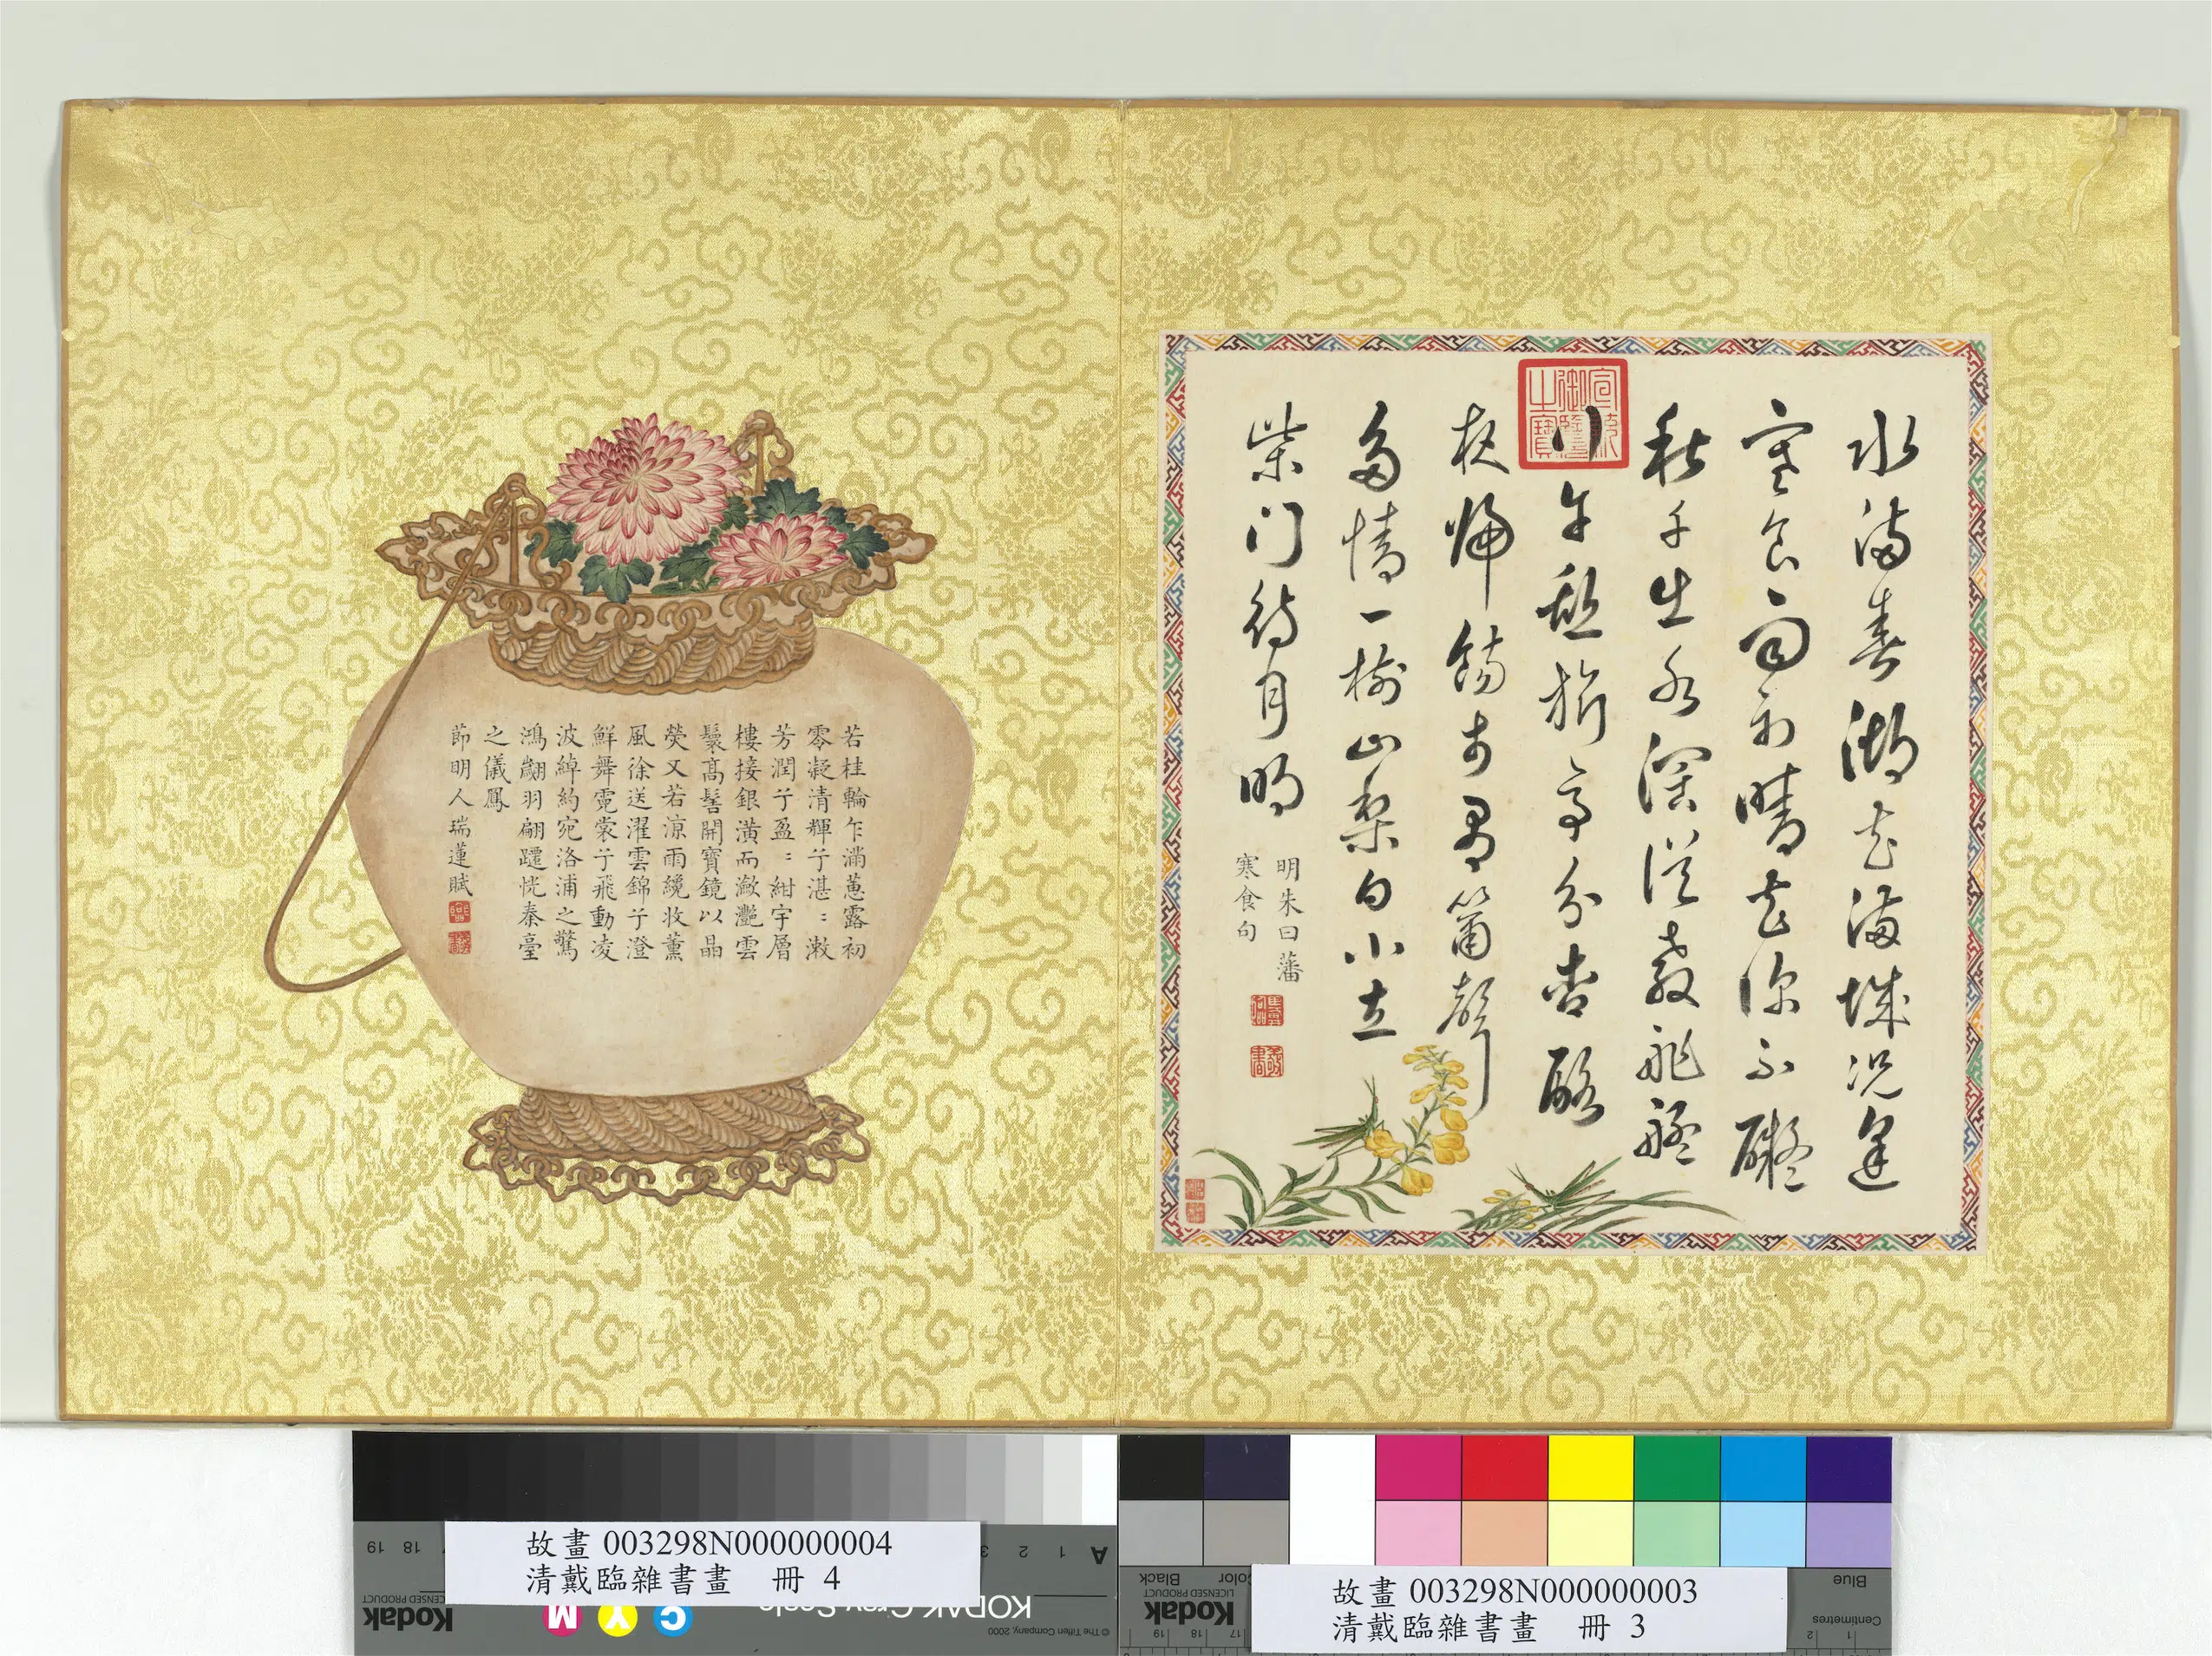 水滿春湖花滿城況逢
寒食雨初晴花不礙
秋千出水深從教舴艋
行午憩旗亭分杏酪
夜歸餳市簫聲
多情一樹山梨白小立
柴門待月明
明朱曰藩
寒食句
宣統御覽之寶
若桂輪乍滿蕙露初
零凝清輝兮湛〻漱
芳潤兮盈〻紺宇層
樓接銀潢而瀲灩雲
鬟高髻開寶鏡以晶
熒又若涼雨纔收薰
風徐送濯雲錦兮澄
鮮舞霓裳兮飛動凌
波綽約宛洛浦之驚
鴻翽羽翩躚恍秦臺
之儀鳳
節明人瑞蓮賦
故畫 003298N000000004
清戴臨雜書畫 冊 4
故畫 003298N000000003
清戴臨雜書畫 冊 3
Kodak
LICENSED PRODUCT
KODAK Gray Scale
© The Tiffen Company, 2000
A 1 2 3
M Y C
17 18 19
Kodak
LICENSED PRODUCT
Black
Blue
Centimetres